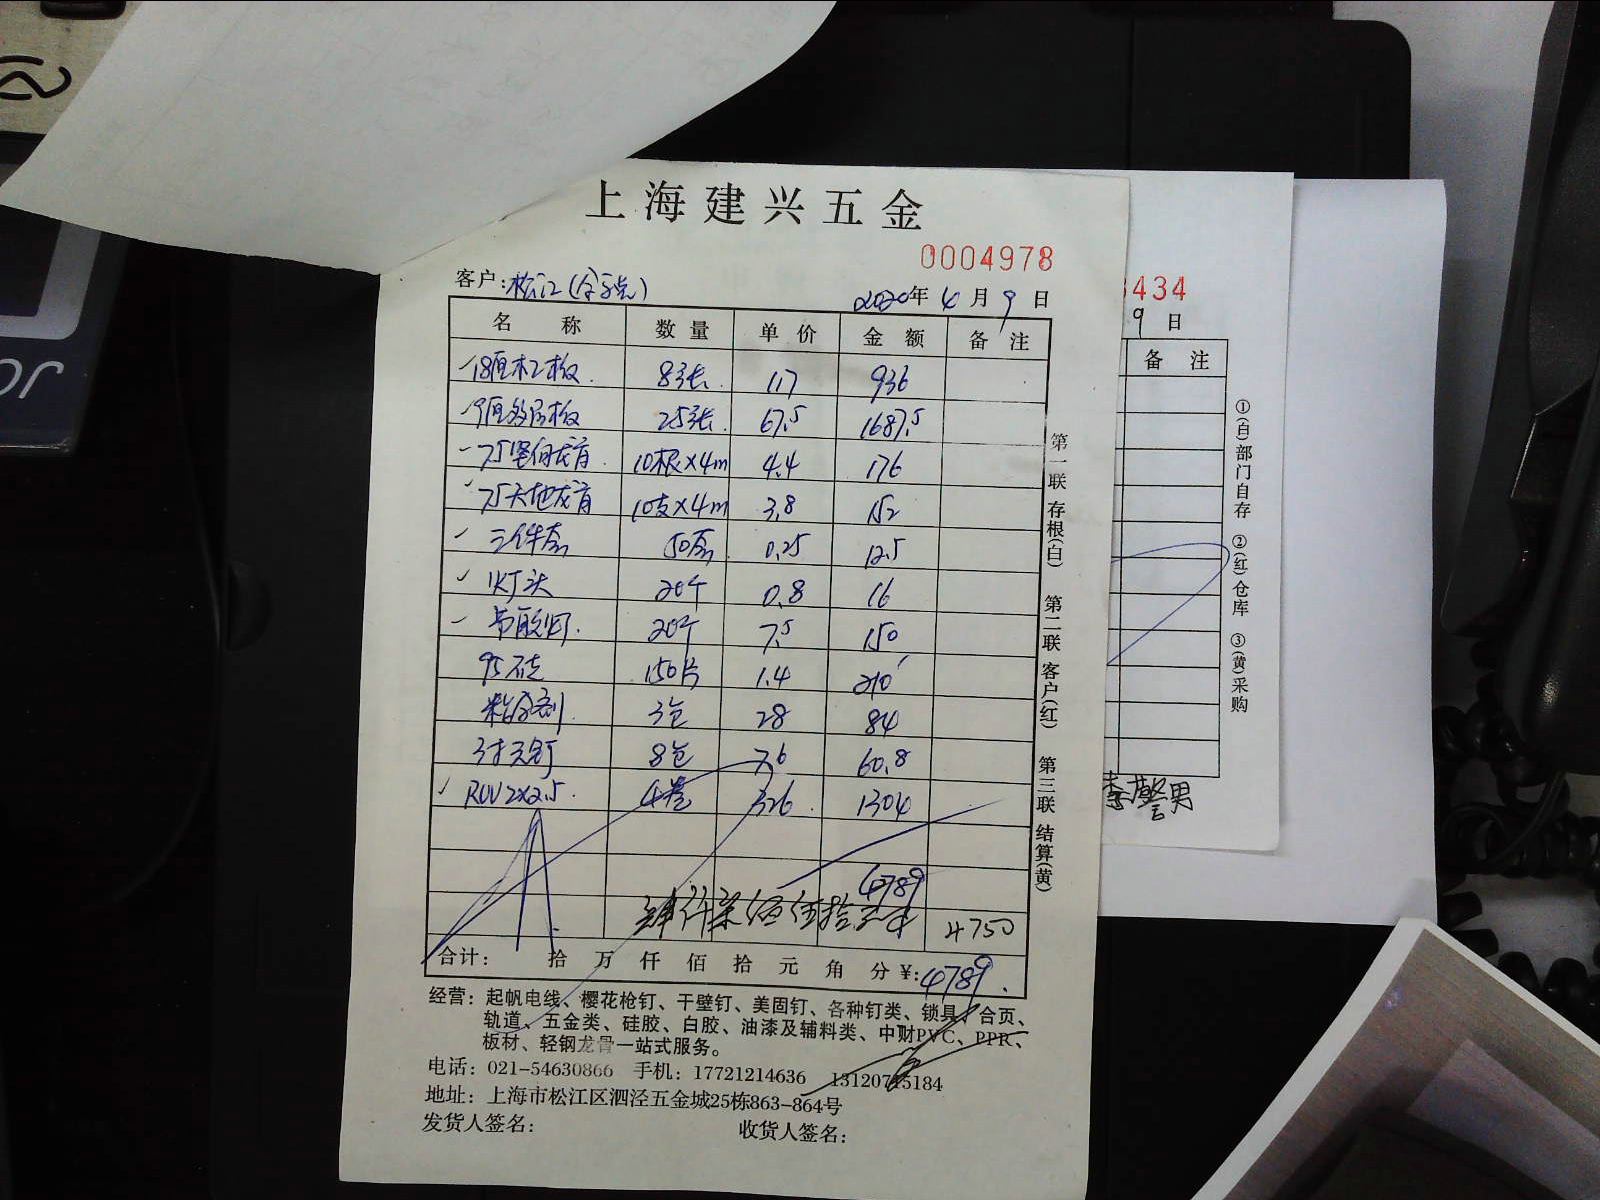 上海建兴五金
0004978
客户:松江
2020年 4月 9日
名称 数量 单价 金额 备注
18厘木工板 8张 117 936
9厘多层板 25张 67.5 1687.5
75竖向龙骨 10根×4m 4.4 176
75天地龙骨 10支×4m 3.8 152
三件套 50套 0.25 12.5
灯头 20个 0.8 16
节能灯 20个 7.5 150
95砖 150片 1.4 210
粘合剂 3包 28 84
3寸元钉 8包 7.6 60.8
RVV 2×2.5 4卷 326 1304
4789
肆仟柒佰伍拾元 4750
合计: 拾 万 仟 佰 拾 元 角 分 ¥:4789.
经营:起帆电线、樱花枪钉、干壁钉、美固钉、各种钉类、锁具、合页、
轨道、五金类、硅胶、白胶、油漆及辅料类、中财PVC、PPR、
板材、轻钢龙骨一站式服务。
电话:021-54630866 手机:17721214636 13120715184
地址:上海市松江区泗泾五金城25栋863-864号
发货人签名: 收货人签名:
第一联 存根(白) 第二联 客户(红) 第三联 结算(黄)
3434
9日
备注
李警男
①(白)部门自存 ②(红)仓库 ③(黄)采购